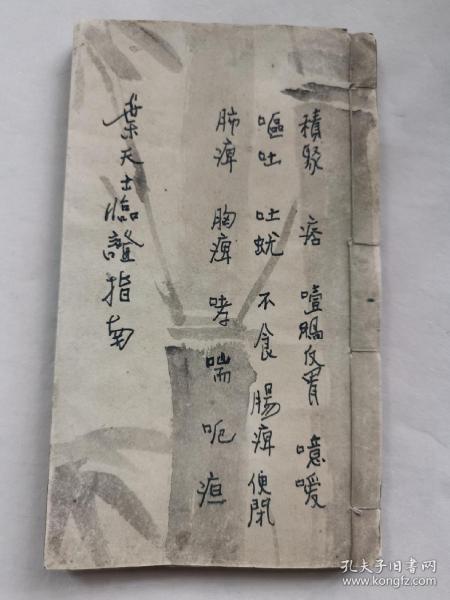 積聚 痞 噎膈反胃 噫噯
嘔吐 吐蚘 不食 腸痺 便閉
肺痺 胸痺 哮 喘 呃 疸
葉天士臨證指南
孔夫子旧书网
www.kongfz.com